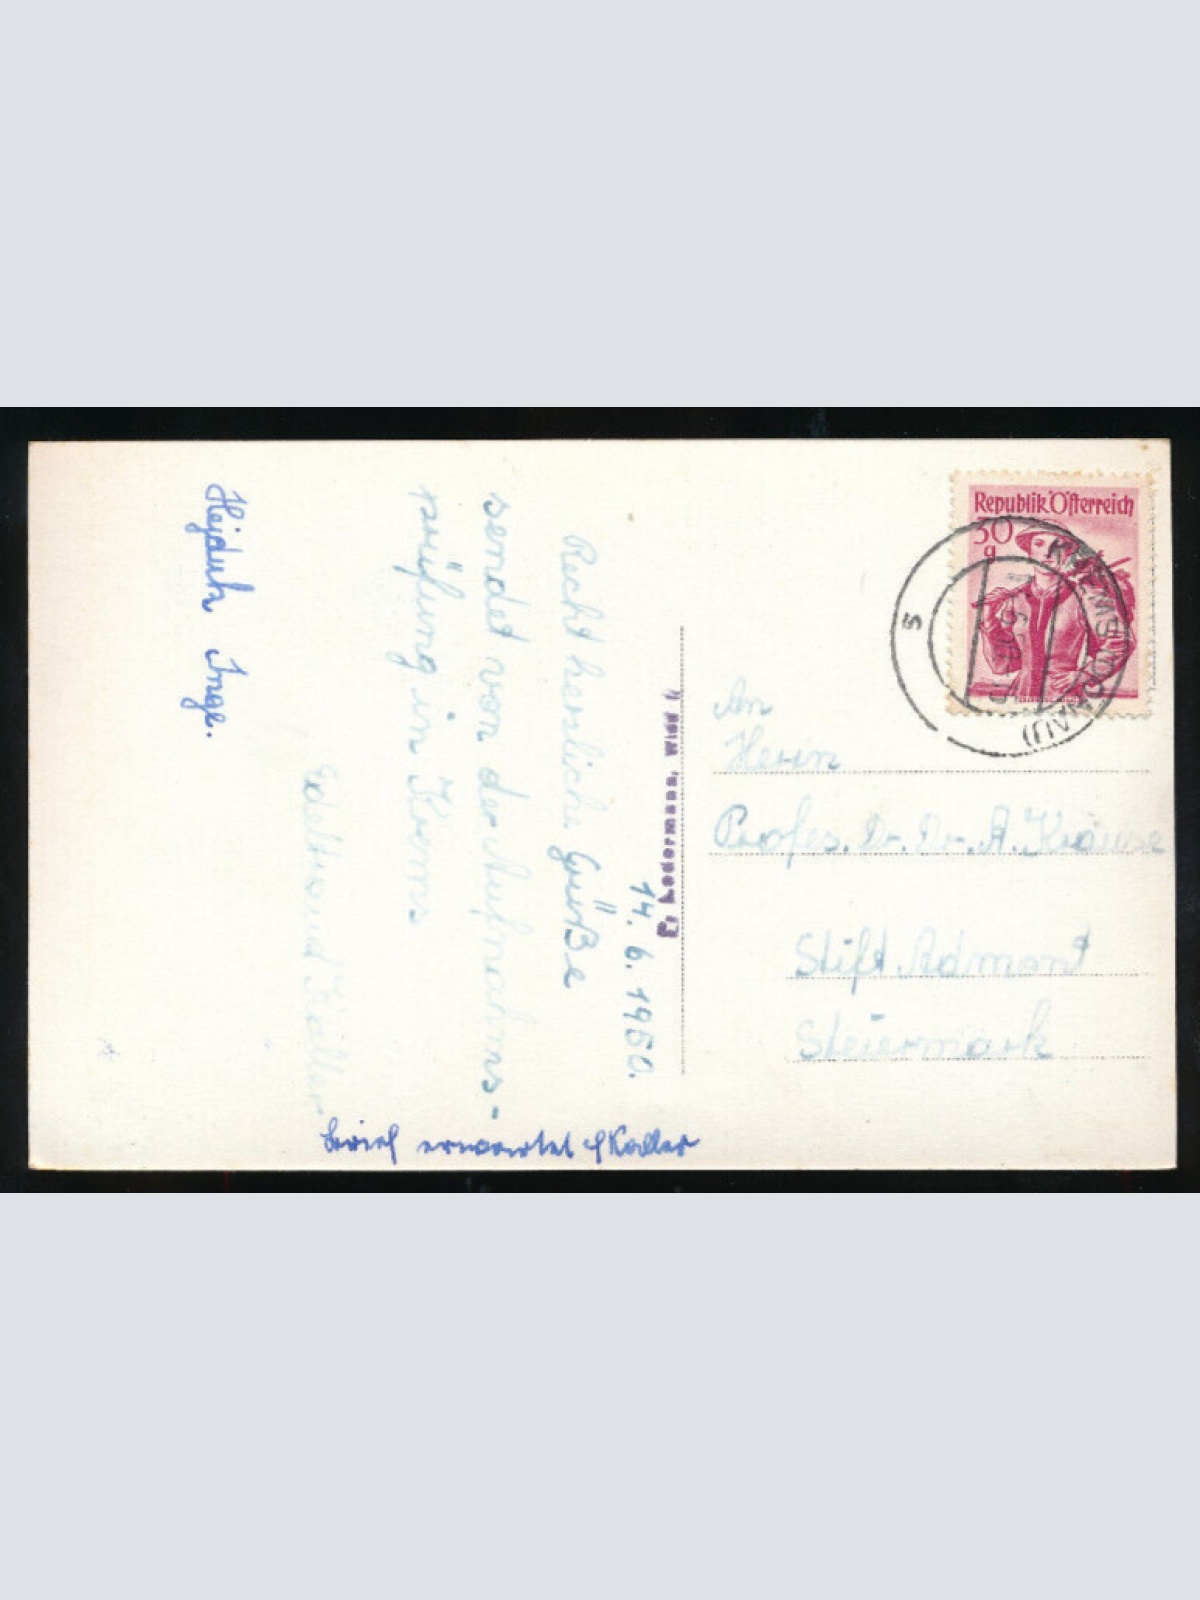 14. 6. 1950.
Recht herzliche Grüße
sendet von der Aufnahms-
prüfung in Krems
Edeltraud Kaller
Hejduk Inge.
Brief erwartet Kaller
E. Ledermann, Wien
Republik Österreich
30
g
KREMS (DONAU)
s
An
Herrn
Profes. Dr. Dr. A. Krause
Stift Admont
Steiermark